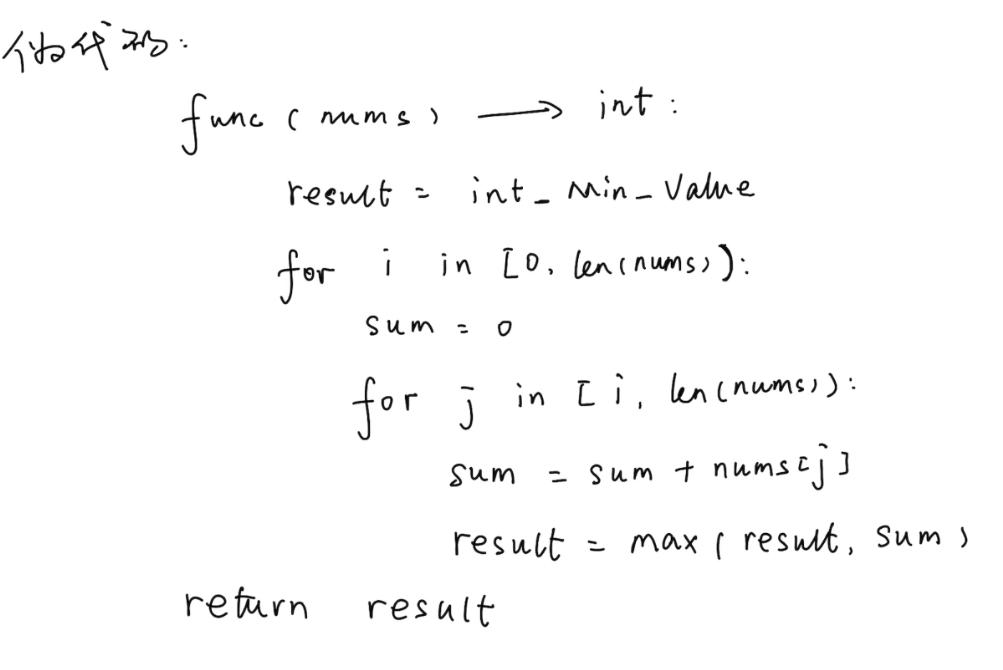 伪代码:
func(nums) ⟶ int:
result = int_Min_Value
for i in [0, len(nums)):
sum = 0
for j in [i, len(nums)):
sum = sum + nums[j]
result = max(result, sum)
return result